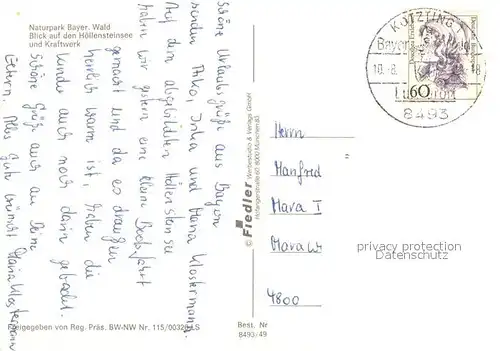 Naturpark Bayer. Wald
Blick auf den Höllensteinsee
und Kraftwerk
Schöne Urlaubsgrüße aus Bayern
senden Anke, Inka und Maria Klostermann.
Auf dem abgebildeten Höllensteinsee
haben wir gestern eine kleine Bootsfahrt
gemacht und da es draußen
herrlich warm ist, haben die
Kinder auch noch darin gebadet.
Schöne Grüße auch an Deine
Eltern. Alles Gute wünscht Maria Klostermann
Freigegeben von Reg. Präs. BW-NW Nr. 115/00328 LS
© Fiedler Werbestudio & Verlags GmbH
8000 München
Best. Nr
8493/49
KÖTZTING
Bayer.
10.-8.
-18
Luftkurort
8493
Deutsche Bundespost
60
Herrn
Manfred
Mara I
Mara
4800
privacy protection
© AnsichtskartenVersand